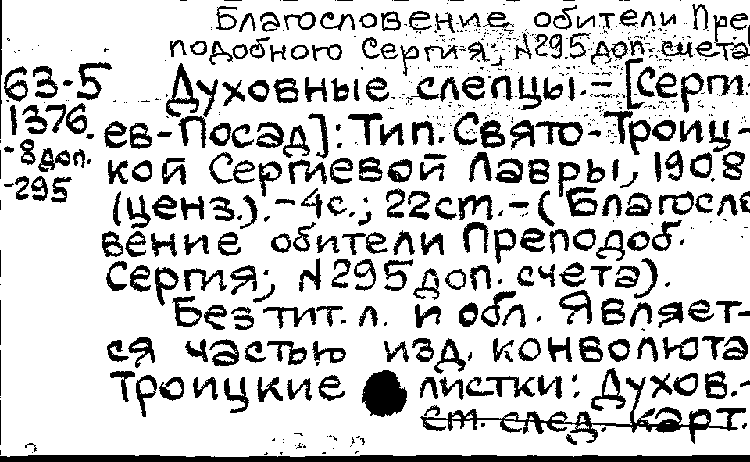 Благословение обители Пре
подобного Сергия; №295 доп. счета
63-5 Духовные слепцы. – [Серги
1376. ев-Посад]: Тип. Свято-Троиц-
-8 доп. кой Сергиевой Лавры, 1908
-295 (ценз.). – 4с.; 22см. – (Благосло
вение обители Преподоб.
Сергия; №295 доп. счета).
Без тит. л. и обл. Являет-
ся частью изд. конволюта
Троицкие листки: Духов. -
см. след. карт.